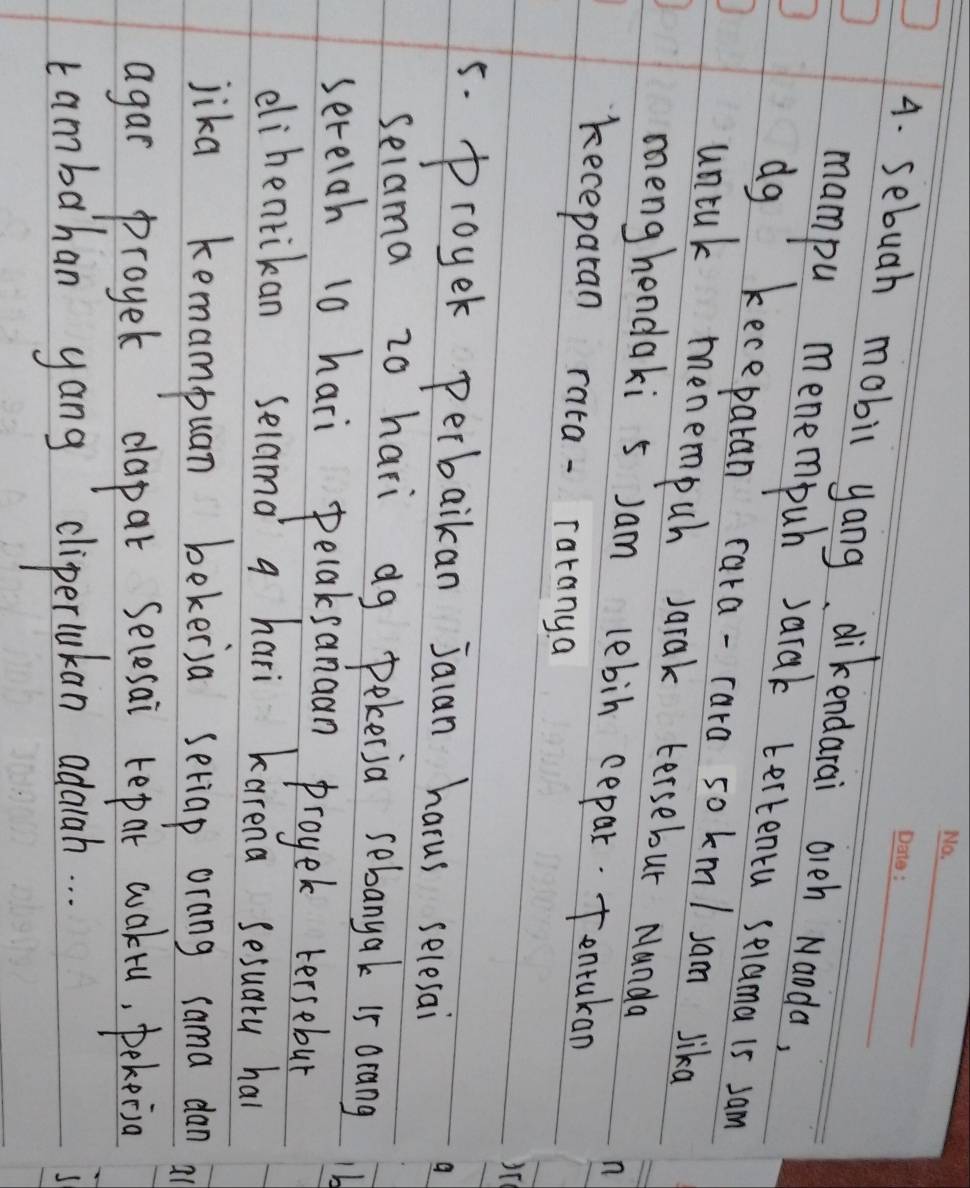 No.
Date:
4. sebuah mobil yang dikendarai oleh Nanda,
mampu menempuh jarak tertentu selama 15 jam
dg kecepatan rata-rata 50 km/jam jika
untuk menempuh jarak tersebut Nanda
menghendaki 5 jam lebih cepat. Tentukan
kecepatan rata-ratanya
5. Proyek perbaikan jalan harus selesai
selama 20 hari dg pekerja sebanyak 15 orang
setelah 10 hari pelaksanaan proyek tersebut
dihentikan selama 4 hari karena sesuatu hal
jika kemampuan bekerja setiap orang sama dan
agar proyek dapat selesai tepat waktu, pekerja
tambahan yang diperlukan adalah...